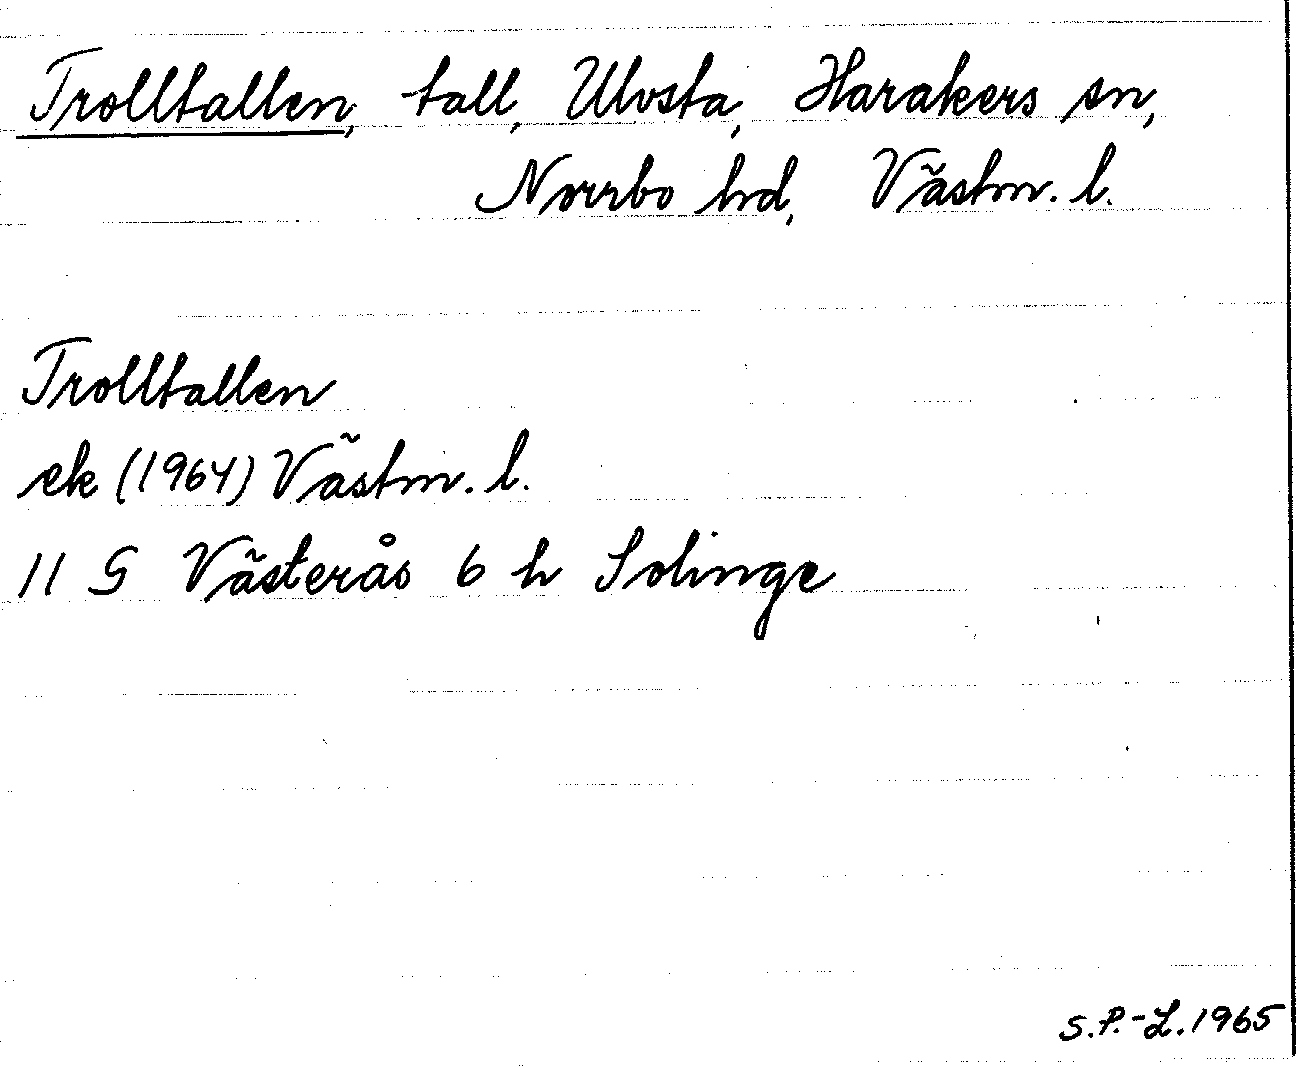 Trolltallen, tall, Ulvsta, Harakers sn,
Norrbo hd, Västm. l.
Trolltallen
ek (1964) Västm. l.
11 G Västerås 6 h Solinge
S.P.-L. 1965